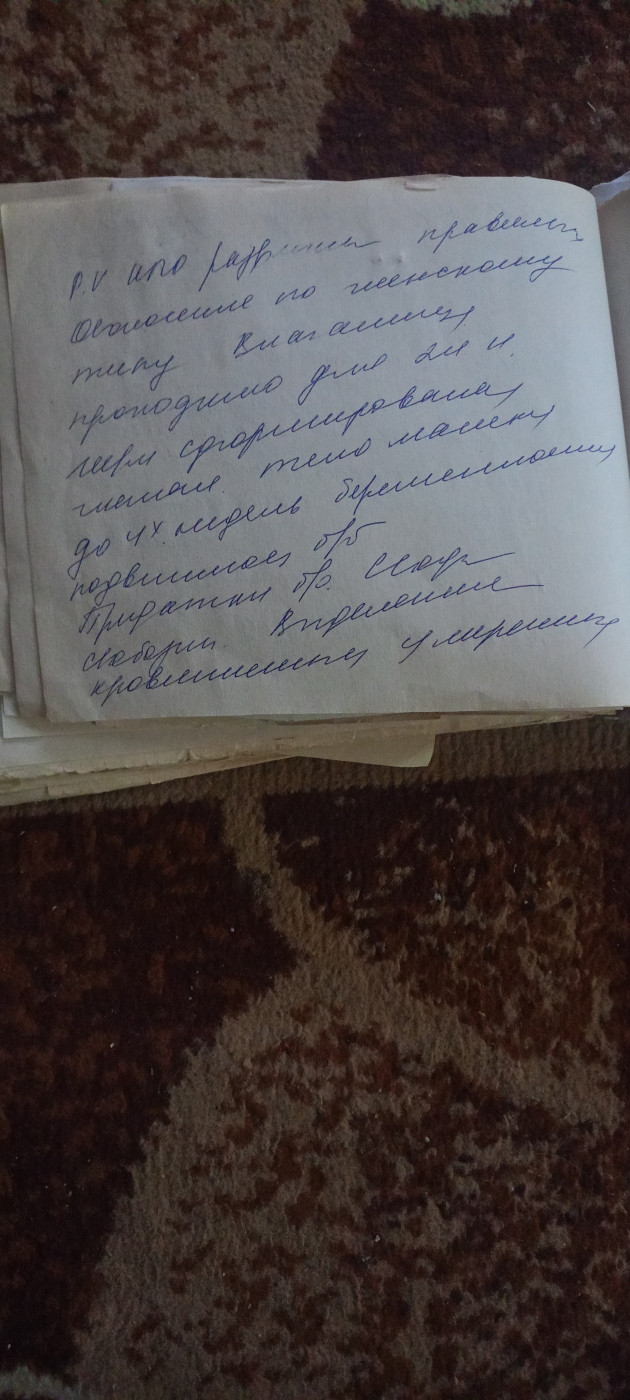 P.V НПО развиты правильно
Оволосение по женскому
типу Влагалище
проходимо для 2х п.
шейка сформирована
чистая. тело матки
до 4х недель беременности
подвижное б/б
Придатки б/о. Своды
свободны. Выделения
кровянистые умеренные